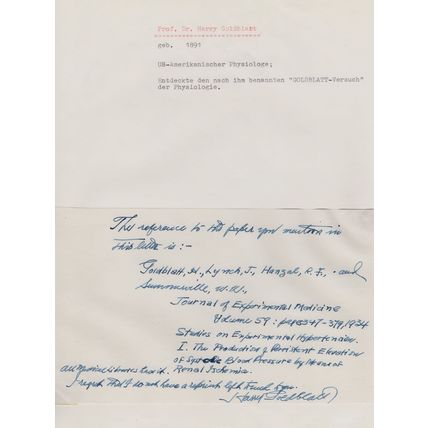 Prof. Dr. Harry Goldblatt
geb. 1891
US-Amerikanischer Physiologe;
Entdeckte den nach ihm benannten "GOLDBLATT-Versuch"
der Physiologie.
The reference to the paper you mention in
this letter is :-
Goldblatt, H., Lynch, J., Hanzal, R. F., and
Summerville, W. W.,
Journal of Experimental Medicine
Volume 59 : pages 347-379, 1934
Studies on Experimental Hypertension.
I. The Production of Persistent Elevation
of Systolic Blood Pressure by Means of
Renal Ischemia.
All Medical Libraries have it.
I regret that I do not have a reprint left to send you.
Harry Goldblatt